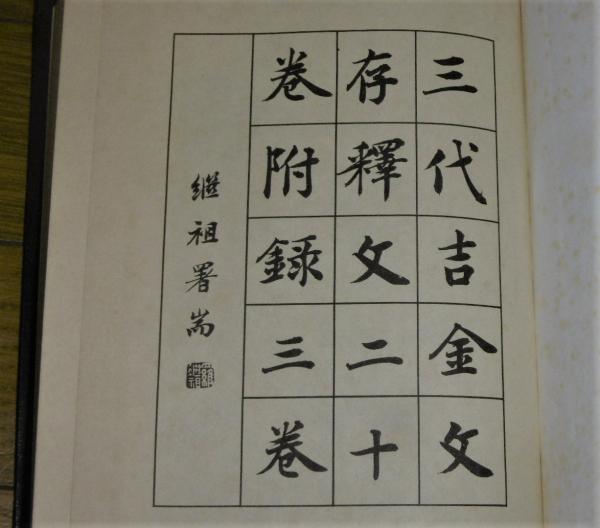 三代吉金文
存釋文二十
卷附錄三卷
继祖署耑